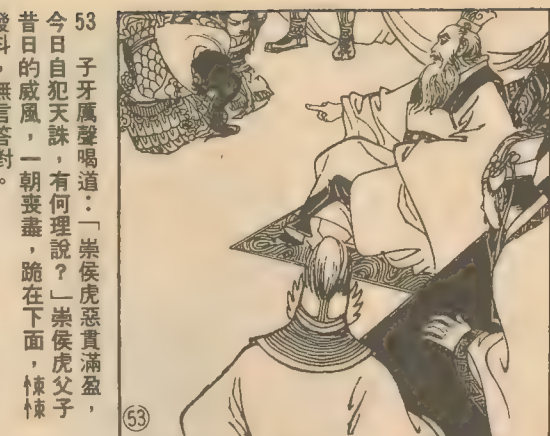 53 子牙厲聲喝道：「崇侯虎惡貫滿盈，
今日自犯天誅，有何理說？」崇侯虎父子
昔日的威風，一朝喪盡，跪在下面，悚悚
發抖，無言答對。
53